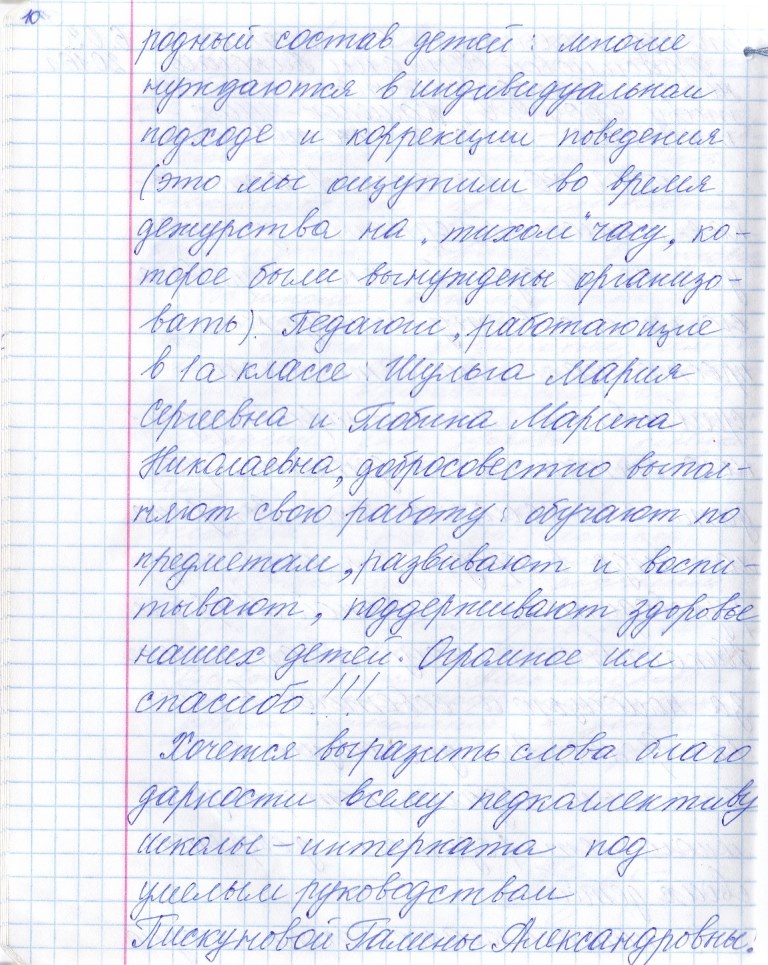 10
родный состав детей: многие
нуждаются в индивидуальном
подходе и коррекции поведения
(это мы ощутили во время
дежурства на „тихом" часу, ко-
торое были вынуждены организо-
вать). Педагоги, работающие
в 1а классе: Шульга Мария
Сергеевна и Глобина Марина
Николаевна, добросовестно выпол-
няют свою работу: обучают по
предметам, развивают и воспи-
тывают, поддерживают здоровье
наших детей. Огромное им
спасибо!!!
Хочется выразить слова благо
дарности всему педколлективу
школы-интерната под
умелым руководством
Пискуновой Галины Александровны.